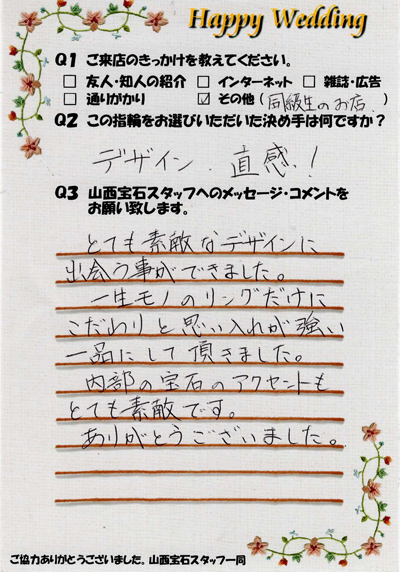 Happy Wedding
Q1 ご来店のきっかけを教えてください。
□ 友人・知人の紹介 □ インターネット □ 雑誌・広告
□ 通りがかり ☑ その他(同級生のお店.)
Q2 この指輪をお選びいただいた決め手は何ですか?
デザイン. 直感!
Q3 山西宝石スタッフへのメッセージ・コメントを
お願い致します。
とても素敵なデザインに
出会う事ができました。
一生モノのリングだけに
こだわりと思い入れが強い
一品にして頂きました。
内部の宝石のアクセントも
とても素敵です。
ありがとうございました。
ご協力ありがとうございました。山西宝石スタッフ一同